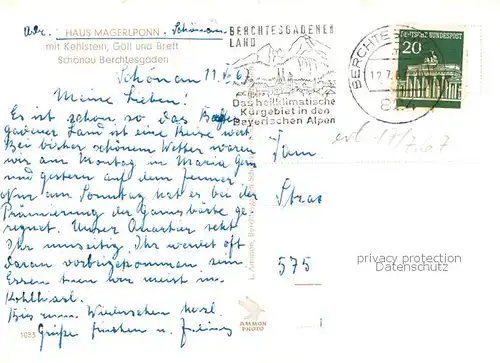 Adr. HAUS MAGERLPONN. Schönau
mit Kehlstein, Göll und Brett
Schönau Berchtesgaden
BERCHTESGADENER
LAND
Das heilklimatische
Kurgebiet in den
Bayerischen Alpen
BERCHTES
12.7.6
824
DEUTSCHE BUNDESPOST
20
Schönau 11.7.67
Meine Lieben!
Es ist schon so, das
gadener Land ist eine Reise wert.
Bei bisher schönem Wetter waren
wir am Montag in Maria Gern
und gestern auf dem Jenner.
Nur am Sonntag hat es bei der
Prämierung der Gamsbärte ge-
regnet. Unser Quartier seht
Ihr umseitig. Ihr werdet oft
daran vorbeigekommen sein.
Essen tun wir meist im
Bis zum Wiedersehen herzl.
Grüße
17/7.67
Fam.
Stras
575
privacy protection
Datenschutz
AMMON
PHOTO
1053